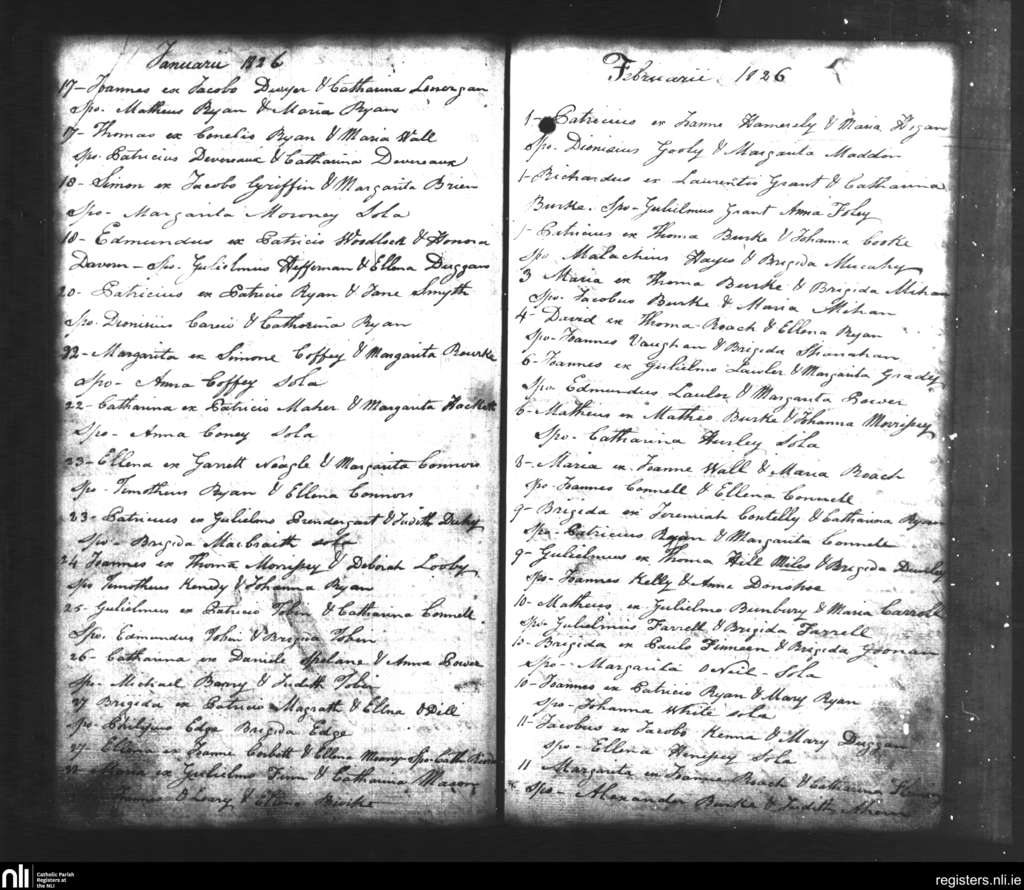 Januarii 1826
17- Joannes ex Jacobo Dwyer & Catharina Lonergan
Spo. Matheus Ryan & Maria Ryan
17- Thomas ex Cornelio Ryan & Maria Wall
Spo. Patricius Devereaux & Catharina Devereaux
18- Simon ex Jacobo Griffin & Margarita Brien
Spo- Margarita Moroney Sola
18- Edmundus ex Patricio Woodlock & Honora
Davern- Spo. Gulielmus Heffernan & Ellena Duggan
20- Patricius ex Patricio Ryan & Jane Smyth
Spo. Dionisius & Catharina Ryan
22- Margarita ex Simone Coffey & Margarita Rourke
Spo- Anna Coffey Sola
22- Catharina ex Patricio Maher & Margarita Hackett
Spo- Anna Coney Sola
23- Ellena ex Garrett Neagle & Margarita Connors
Spo- Timotheus Ryan & Ellena Connors
23- Patricius ex Gulielmo Prendergast & Judith
Spo- Brigida MacCraith sola
24 Joannes ex Thoma Morrisey & Deborah Looby
Spo Timotheus Kendy & Johanna Ryan
25- Gulielmus ex Patricio Tobin & Catharina Connell.
Spo. Edmundus Tobin & Brigida Tobin
26- Catharina ex Daniele Spelane & Anna Power
Spo- Michael Barry & Judith Tobin
27 Brigida ex Patricio Magrath & Ellena Odell
Spo- Philipus Edge Brigida Edge
27- Ellena ex Joanne Corbett & Ellena Meany Spo- Cath.
Maria ex Gulielmo Finn & Catharina Mason
James O Leary & Ellena Burke
Februarii 1826
1- Patricius ex Joanne Hamersly & Maria Hogan
Spo. Dionisius Gooly & Margarita Maddon
1- Richardus ex Laurentio Grant & Catharina
Burke. Spo- Gulielmus Grant Anna Foley
1- Patricius ex Thoma Burke & Johanna Cooke
Spo Malachius Hayes & Brigida Mucahy
3 Maria ex Thoma Burke & Brigida Mihan
Spo. Jacobus Burke & Maria Mihan
4- David ex Thoma Roach & Ellena Ryan
Spo- Joannes Vaughan & Brigida Shanahan
6- Joannes ex Gulielmo Lawler & Margarita Grady
Spo Edmundus Lawlor & Margarita Power
6- Matheus ex Matheo Burke & Johanna Morrisey
Spo- Catharina Hurley Sola
8- Maria ex Joanne Wall & Maria Roach
Spo- Joannes Connell & Ellena Connell
9- Brigida ex Jeremiah Costelly & Catharina Ryan
Spo- Patricius Ryan & Margarita Connell
9- Gulielmus ex Thoma Hill Miles & Brigida Dunley
Spo- Joannes Kelly & Anne Donohoe
10- Matheus ex Gulielmo Bunbury & Maria Carroll
Spo- Gulielmus Farrell & Brigida Farrell
10- Brigida ex Paulo Finneen & Brigida Goonan
Spo- Margarita ONeil- Sola
10- Joannes ex Patricio Ryan & Mary Ryan
Spo- Johanna White sola
11- Jacobus ex Jacobo Kenna & Mary Duggan
Spo- Ellena Henesey Sola
11 Margarita ex Joanne Roach & Catharina
Spo- Alexander Burke & Judith Ahern
nli
Catholic Parish
Registers at
the NLI
registers.nli.ie